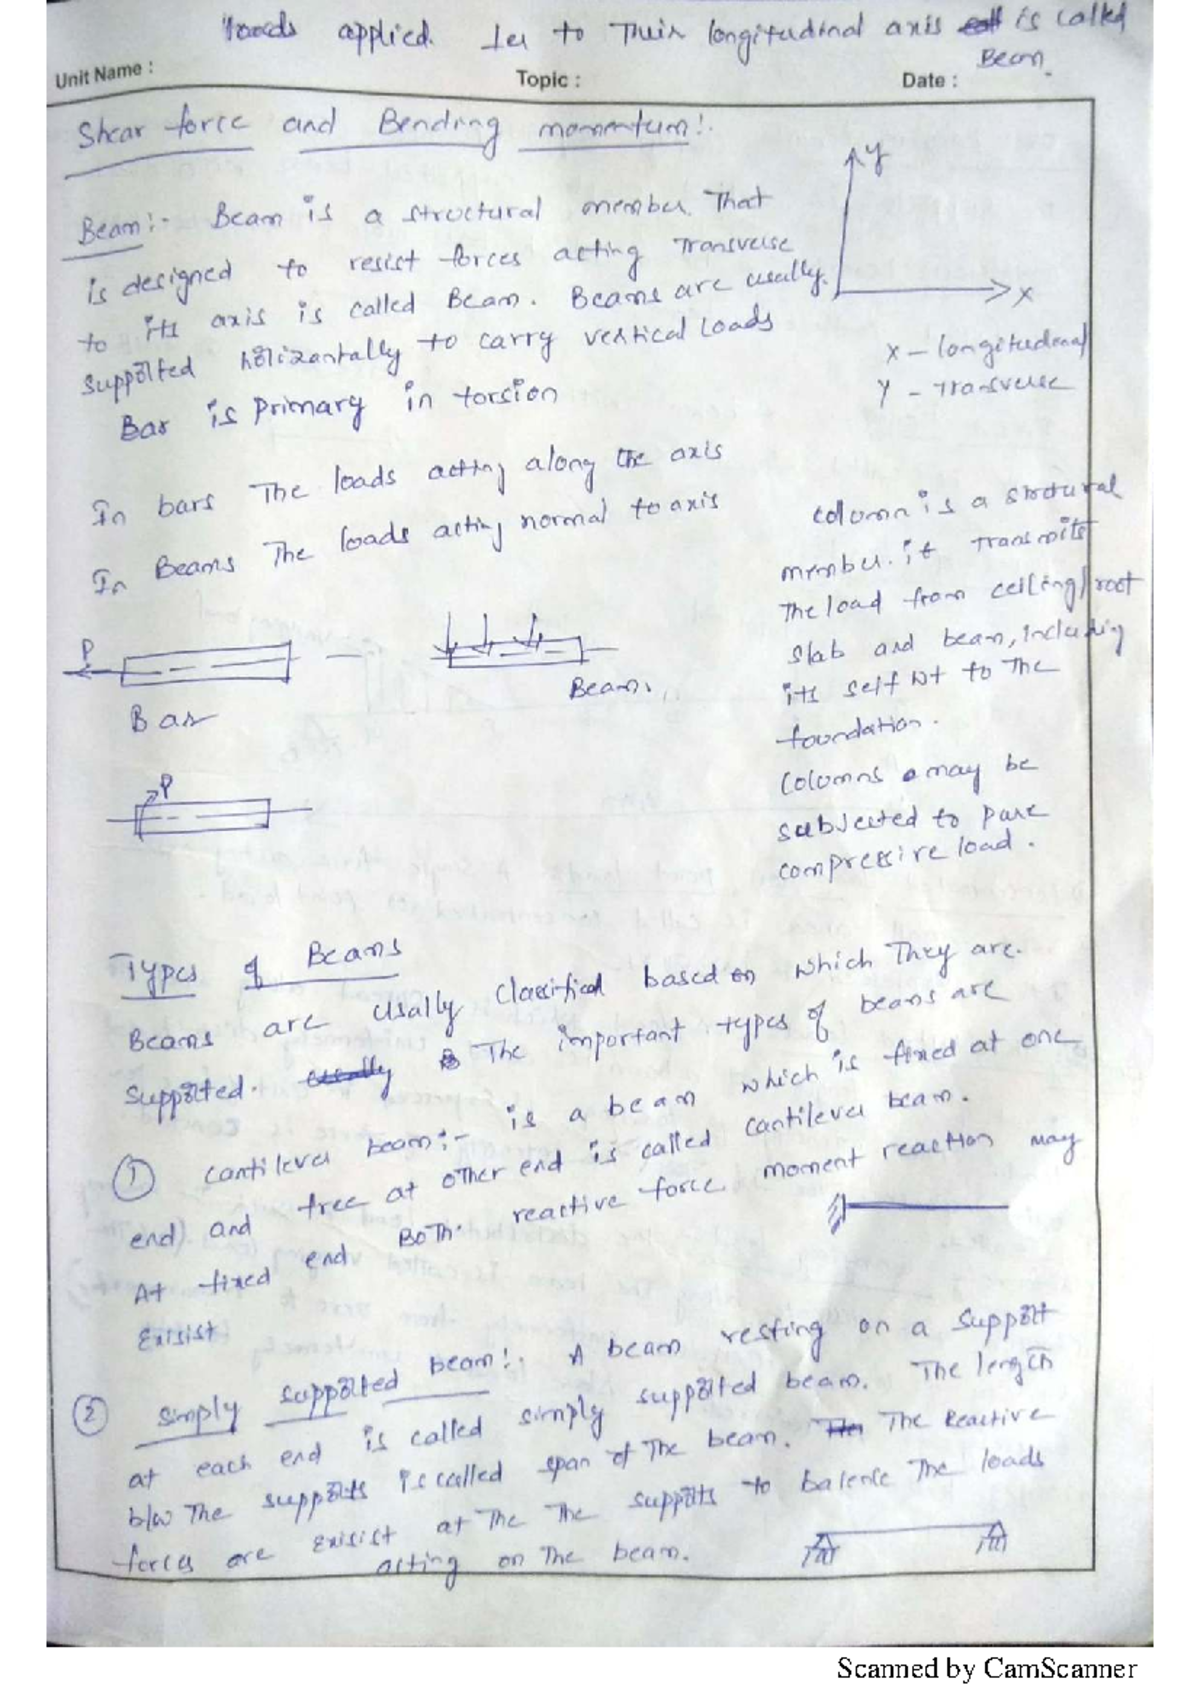 loads applied ler to Their longitudinal axis is called
Beam.
Unit Name :
Topic :
Date :
Shear force and Bending momentum:.
Y
X
X - longitudinal
Y - Transverse
Beam:- Beam is a structural member That
is designed to resist forces acting Transverse
to its axis is called Beam. Beams are usually.
supported horizantally to carry vertical loads
Bar is primary in torsion
In bars The loads acting along the axis
In Beams The loads acting normal to axis
P
Bar
Beam.
P
column is a structural
member. it transmits
The load from ceiling/roof
slab and beam, including
its self wt to The
foundation.
Columns may be
subjected to pure
compressive load.
Types of Beams
Beams are usually classified based on which They are.
supported. The important types of beams are
① cantilever beam:- is a beam which is fixed at one
end) and free at other end is called cantilever beam.
At fixed end Both reactive force moment reaction may
Exisist
② simply supported beam:. A beam resting on a support
at each end is called simply supported beam. The length
b/w The supports is called span of The beam. The Reactive
forces are exisist at The The supports to balence The loads
acting on The beam.
Scanned by CamScanner